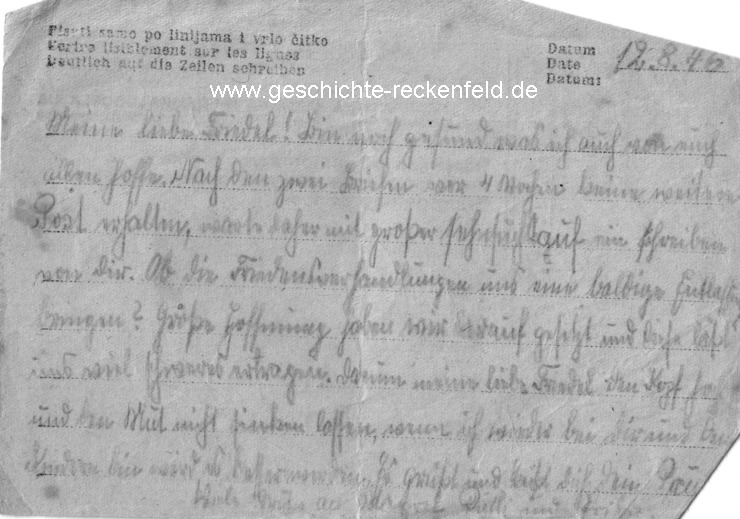 Pisati samo po linijama i vrlo čitko
Ecrire lisiblement sur les lignes
Deutlich auf die Zeilen schreiben
Datum
Date
Datum:
12.8.46
www.geschichte-reckenfeld.de
Meine liebe Friedel! Bin noch gesund was ich auch von euch
allen hoffe. Nach den zwei Briefen vor 4 Wochen keine weitere
Post erhalten, warte daher mit großer Sehnsucht auf ein Schreiben
von Dir. Ob die Friedensverhandlungen uns eine baldige
bringen? Große Hoffnung haben wir darauf gesetzt und diese läßt
uns viel schweres ertragen. Darum meine liebe Friedel den Kopf
und den Mut nicht sinken lassen, wenn ich wieder bei Dir und
Kindern bin wird es besser werden. Es grüßt und küßt dich Dein
Viele Grüße an